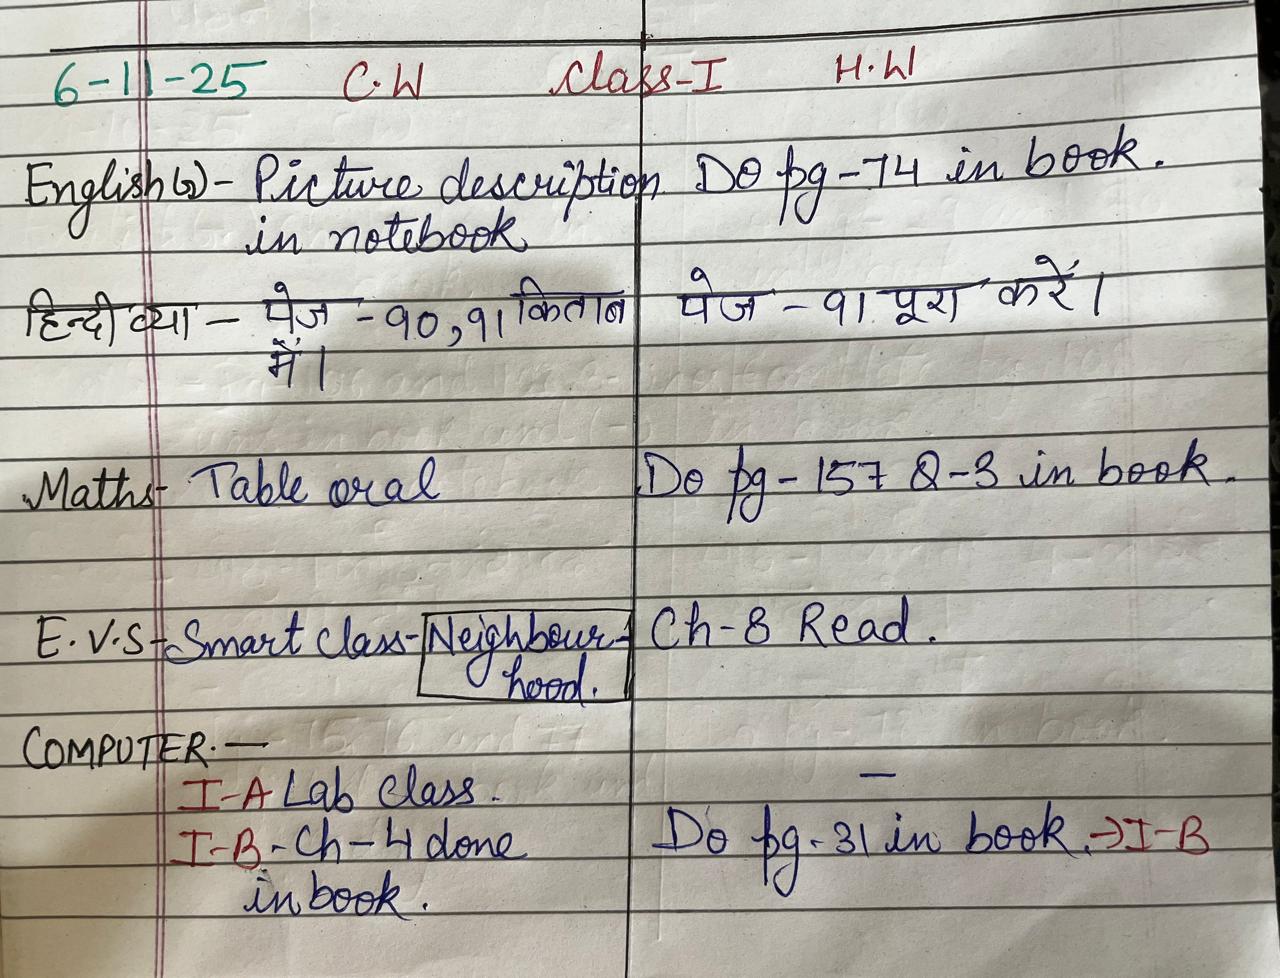 6-11-25 C.W Class-I H.W
English(2)- Picture description Do pg-74 in book.
in notebook
हिन्दी व्या - पेज - ९०,९१ किताब पेज - ९१ पूरा करें।
में।
Maths- Table oral Do pg-157 Q-3 in book.
E.V.S- Smart class- Neighbour- Ch-8 Read.
hood.
COMPUTER.-
I-A Lab class. -
I-B-Ch-4 done Do pg-31 in book.→I-B
in book.